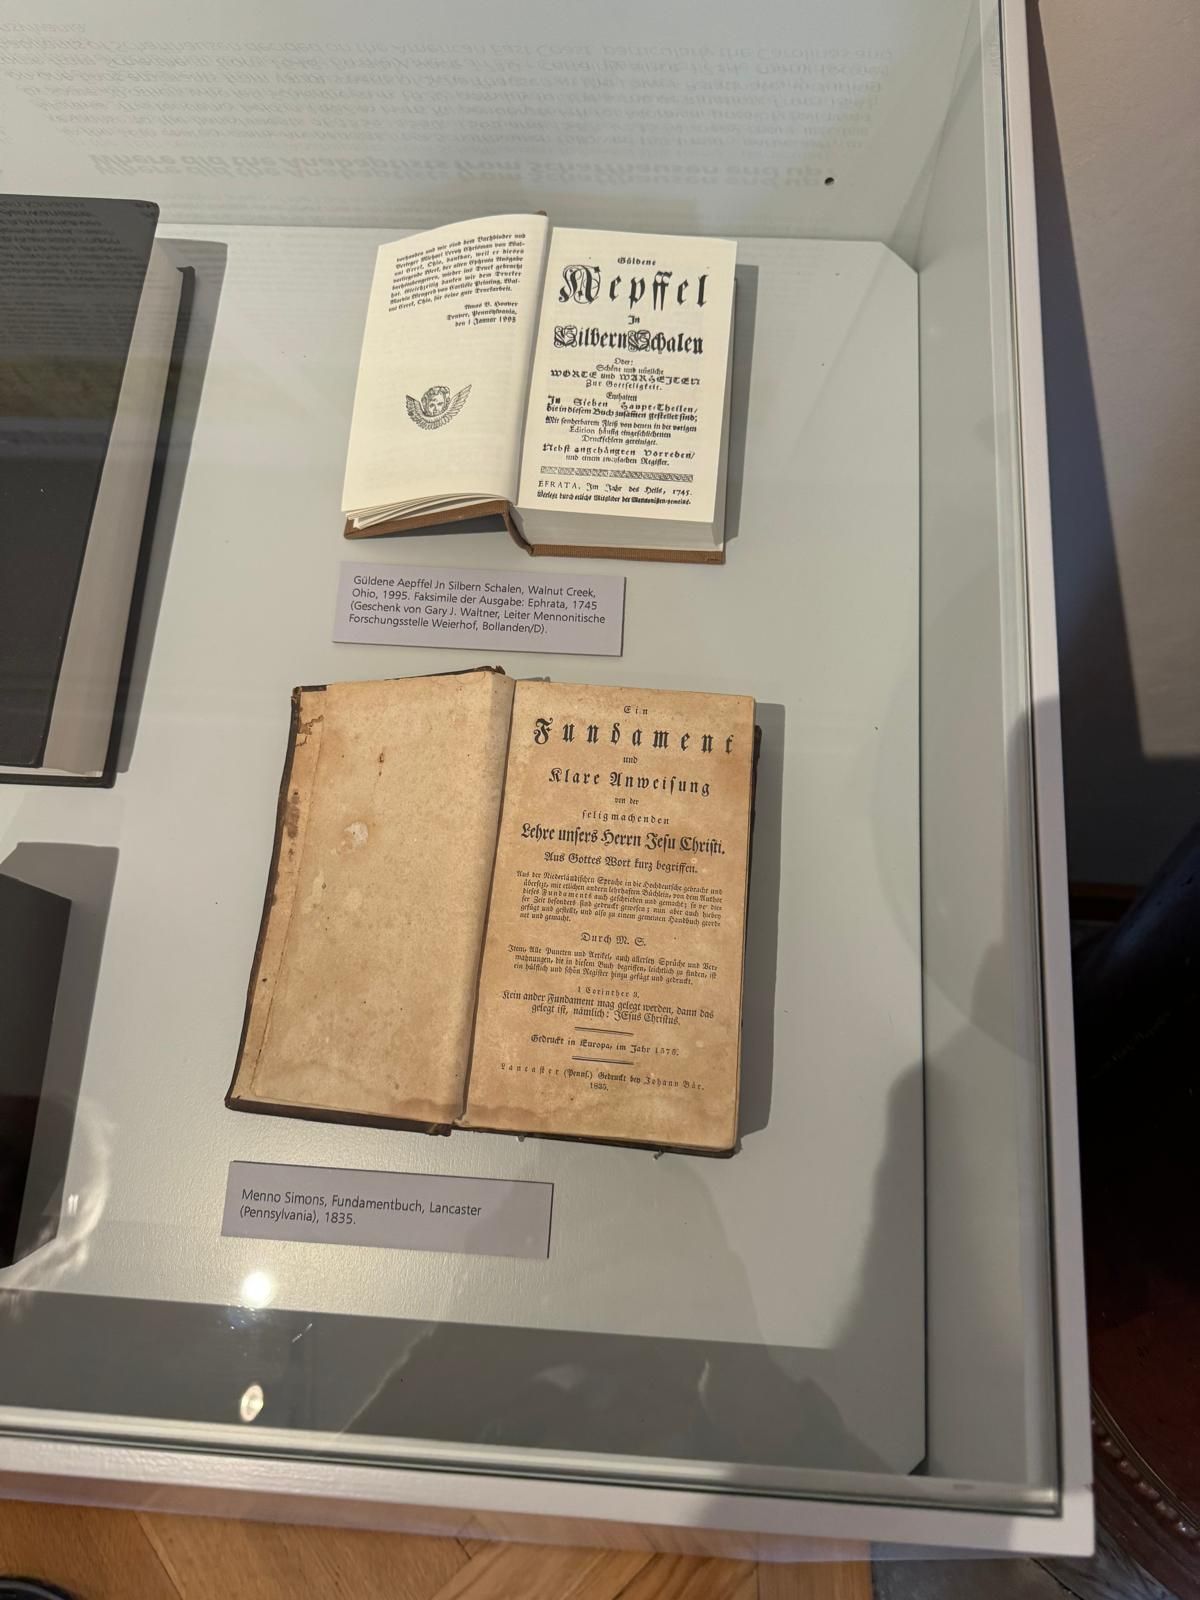 Where did the Anabaptists from Schaffhausen end up?
vorhanden und wir sind dem Buchbinder und
Verleger Michael Veroy Chrisman von Wal-
nut Creek, Ohio, dankbar, weil er dieses
vorliegende Werk, der alten Ephrata Ausgabe
nachzubringen, wieder ins Druck gebracht
hat. Gleichzeitig danken wir dem Drucker
Marvin Wengerd von Carlisle Printing, Wal-
nut Creek, Ohio, für seine gute Druckarbeit.
Amos B. Hoover
Denver, Pennsylvania,
den 1 Januar 1995
Güldene
Aepffel
Jn
Silbern Schalen
Oder:
Schöne und nützliche
WORTE und WARHEJTEN
Zur Gottseligkeit.
Enthalten
Jn Sieben Haupt-Theilen/
die in diesem Buch zusammen gestellet sind;
Mit sonderbarem Fleiß von denen in der vorigen
Edition häuffig eingeschlichenen
Druckfehlern gereiniget.
Nebst angehängten Vorreden/
und einem zweyfachen Register.
EFRATA, Jm Jahr des Heils, 1745.
Verlegt durch etliche Mitglider der Mennonisten-gemeine.
Güldene Aepffel Jn Silbern Schalen, Walnut Creek,
Ohio, 1995. Faksimile der Ausgabe: Ephrata, 1745
(Geschenk von Gary J. Waltner, Leiter Mennonitische
Forschungsstelle Weierhof, Bollanden/D).
Ein
Fundament
und
Klare Anweisung
von der
seligmachenden
Lehre unsers Herrn Jesu Christi.
Aus Gottes Wort kurz begriffen.
Aus der Niederländischen Sprache in die Hochdeutsche gebracht und
übersezt, mit etlichen andern lehrhaften Büchlein, von dem Author
dieses Fundaments auch geschrieben und gemacht; so vor die-
ser Zeit besonders sind gedruckt gewesen; nun aber auch hiebey
gefügt und gestellt, und also zu einem gemeinen Handbuch geord-
net und gemacht.
Durch M. S.
Item, Alle Puncten und Artikel, auch allerley Sprüche und Ver-
mahnungen, die in diesem Buch begriffen, leichtlich zu finden, ist
ein hülflich und schön Register hinzu gefügt und gedruckt.
1 Corinther 3.
Kein ander Fundament mag gelegt werden, dann das
gelegt ist, nämlich: JEsus Christus.
Gedruckt in Europa, im Jahr 1575.
Lancaster (Penns.) Gedruckt bey Johann Bär.
1835.
Menno Simons, Fundamentbuch, Lancaster
(Pennsylvania), 1835.